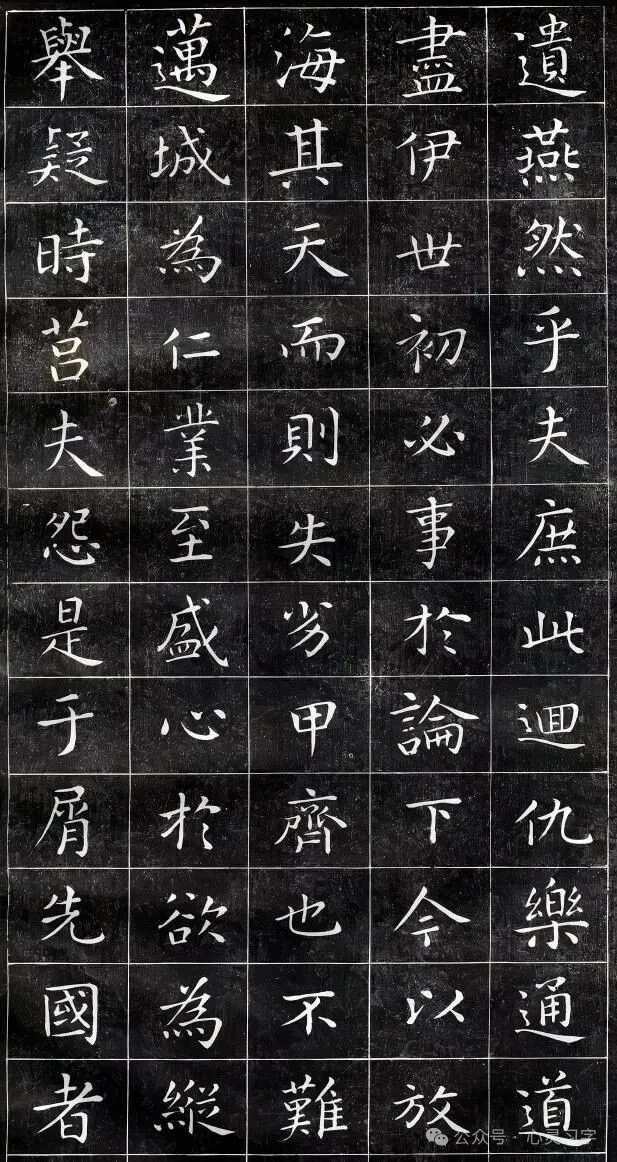 遺燕然乎夫庶此迴仇樂通道
盡伊世初必事於論下今以放
海其天而則失劣甲齊也不難
邁城為仁業至盛心於欲為縱
舉疑時莒夫怨是于屑先國者
公众号·心灵习字